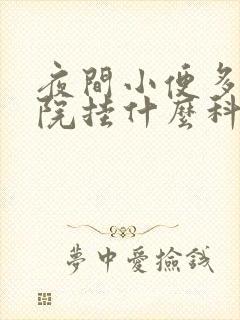 夜間小便多
院挂什麼科
夢中愛撿錢